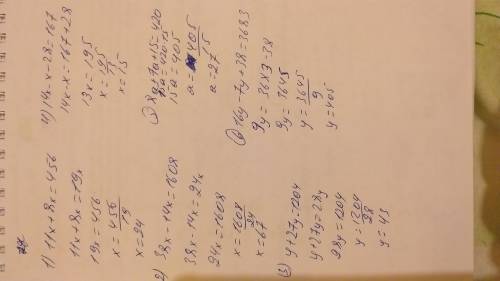 1) 11x+8x=456
11x+8x=19x
19x=456
x=456/19
x=24
2) 38x-14x=1608
38x-14x=24x
24x=1608
x=1608/24
x=67
3) y+27y=1204
y+27y=28y
28y=1204
y=1204/28
y=43
4) 14x-x-28=167
14x-x=167+28
13x=195
x=195/13
x=15
5) 8a+7a+15=420
15a=420-15
15a=405
a=405/15
a=27
6) 16y-7y+38=3683
9y=3683-38
9y=3645
y=3645/9
y=405